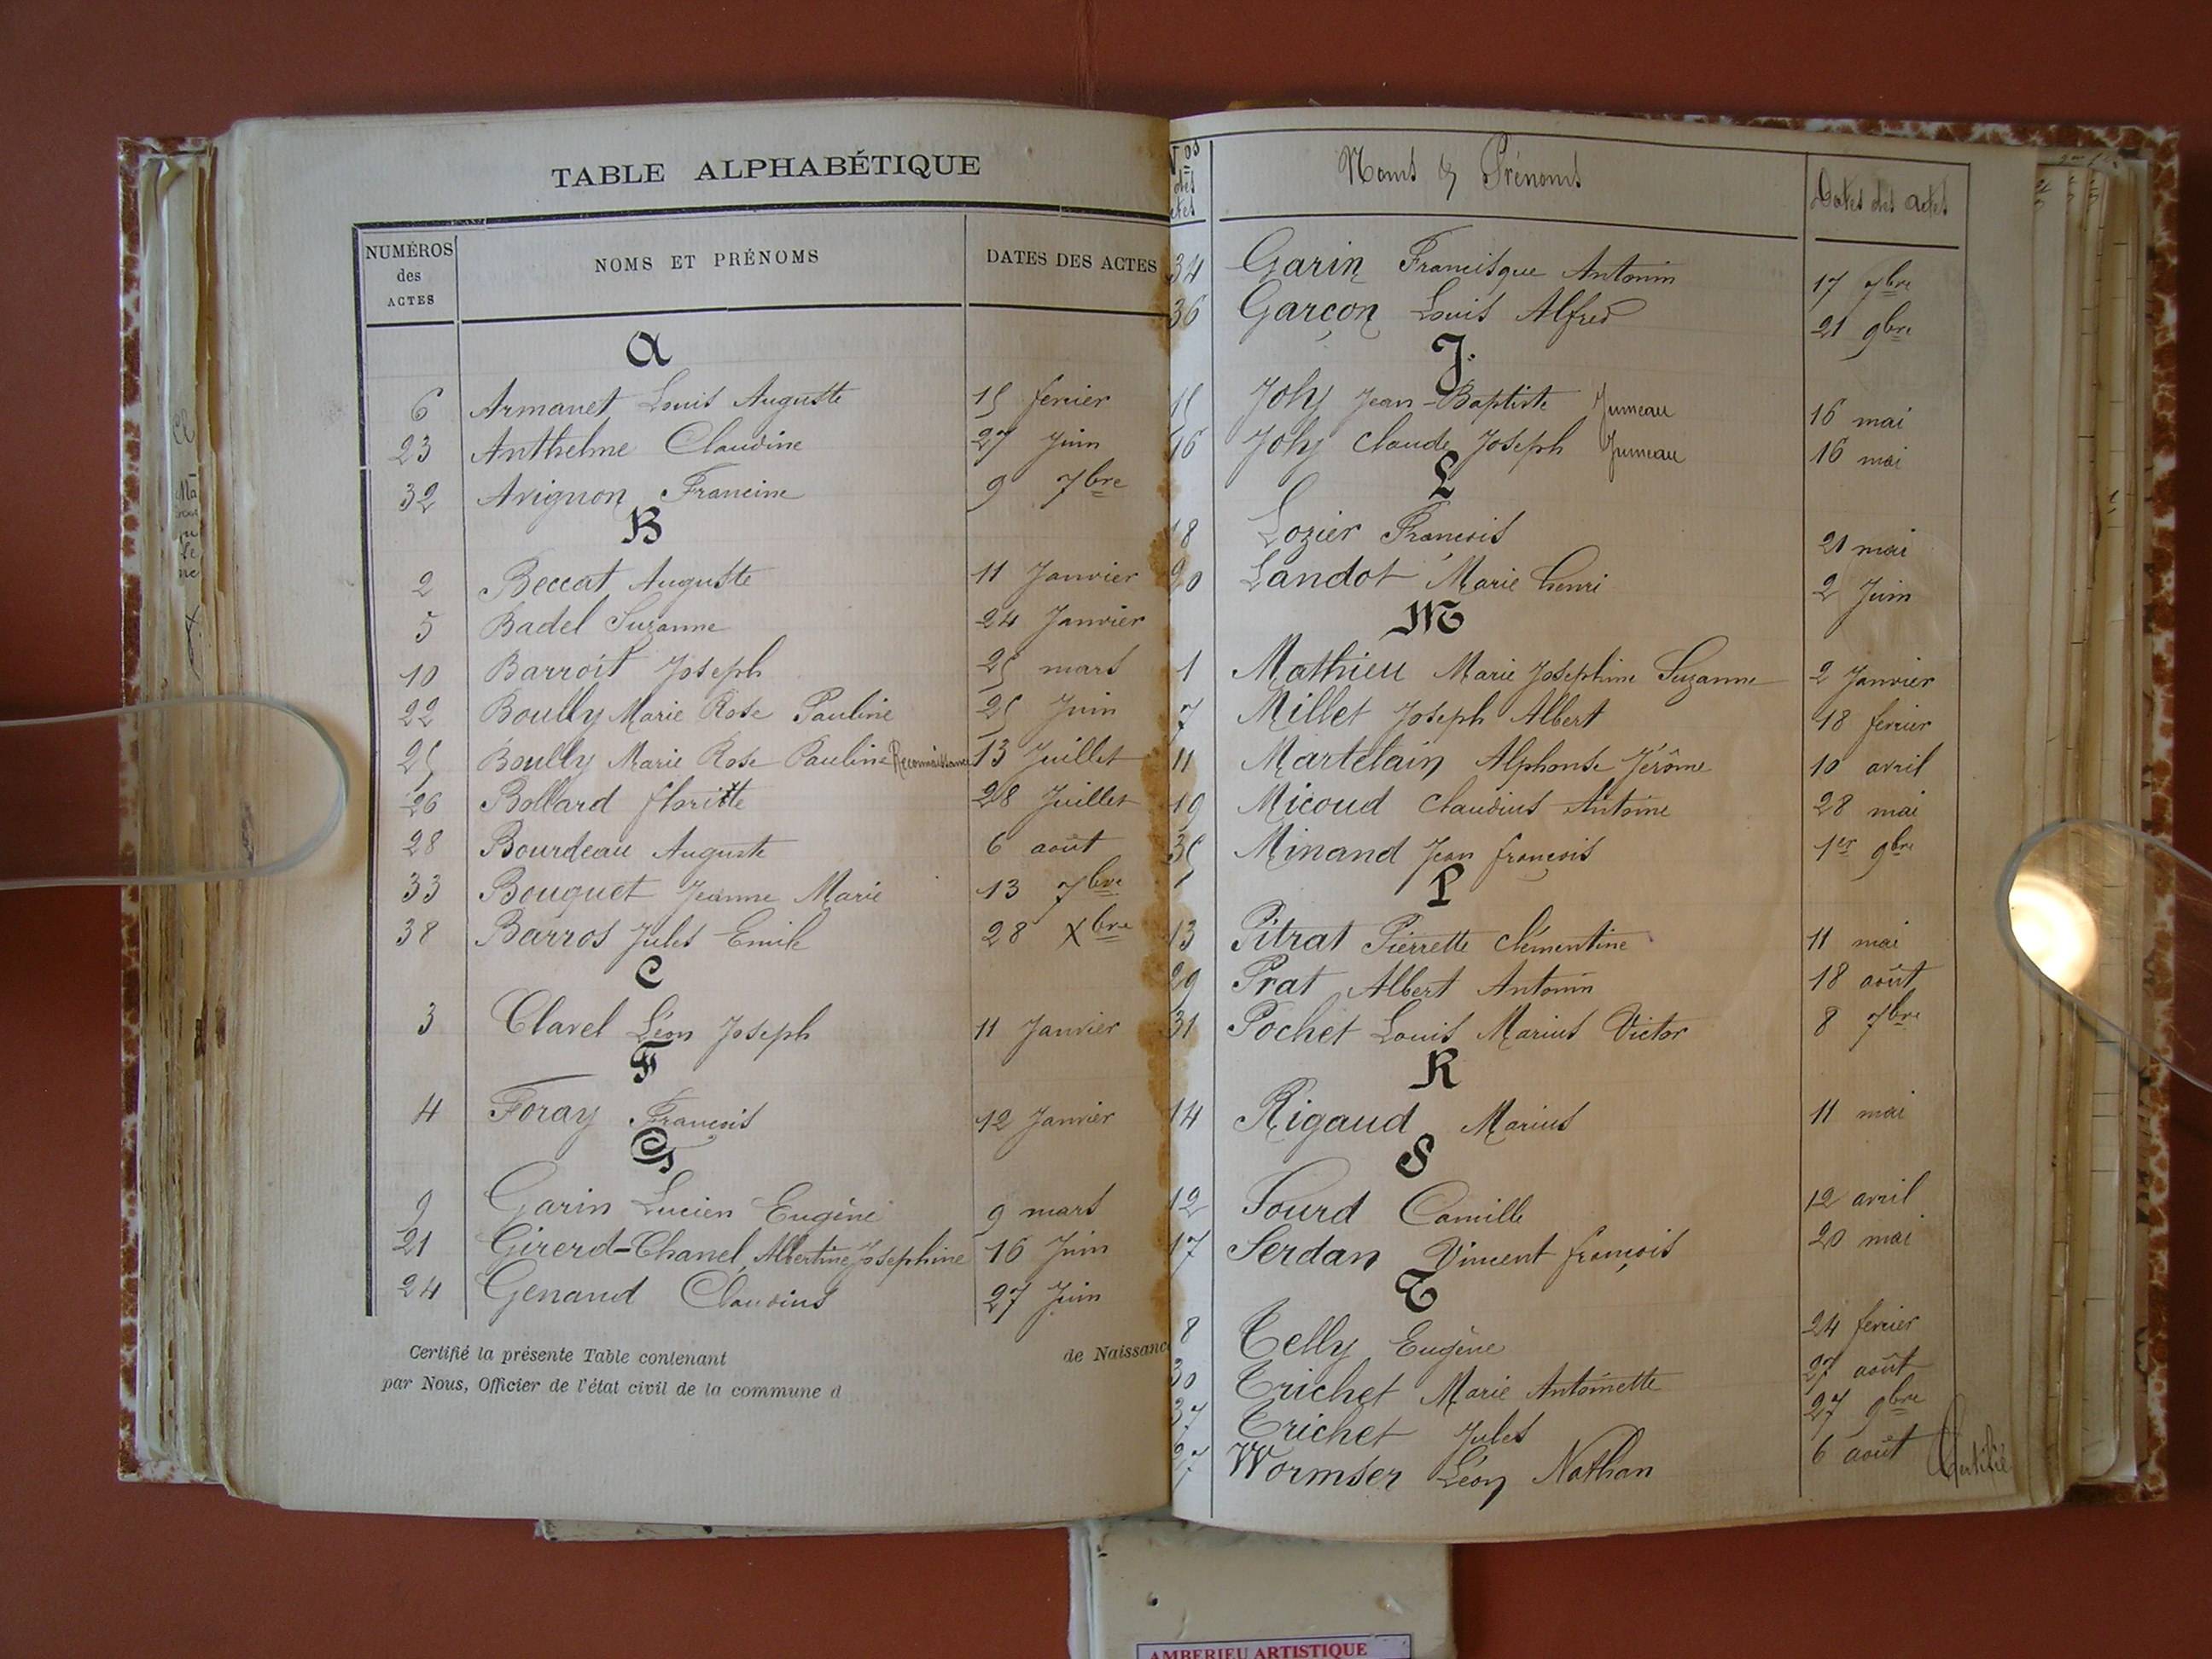 TABLE ALPHABÉTIQUE
NUMÉROS des ACTES NOMS ET PRÉNOMS DATES DES ACTES
A
6 Armanet Louis Auguste 15 fevrier
23 Anthelme Claudine 27 Juin
32 Avignon Francine 9 7bre
B
2 Beccat Auguste 11 Janvier
5 Badel Suzanne 24 Janvier
10 Barroit Joseph 25 mars
22 Boully Marie Rose Pauline 25 Juin
25 Boully Marie Rose Pauline Reconnaissance 13 Juillet
26 Bollard floritte 28 Juillet
28 Bourdeau Auguste 6 août
33 Bouquet Jeanne Marie 13 7bre
38 Barros Jules Emile 28 Xbre
C
3 Clavel Léon Joseph 11 Janvier
F
4 Foray François 12 Janvier
G
9 Garin Lucien Eugène 9 mars
21 Girerd-Chanel, Albertine Josephine 16 Juin
24 Genand Claudius 27 Juin
Certifié la présente Table contenant de Naissance
par Nous, Officier de l'état civil de la commune d
Nos des actes Noms & Prénoms Dates des actes
34 Garin Francisque Antonin 17 7bre
36 Garçon Louis Alfred 21 9bre
J.
15 Joly Jean-Baptiste Jumeau 16 mai
16 Joly Claude Joseph Jumeau 16 mai
L
18 Lozier François 21 mai
20 Landot Marie henri 2 Juin
M
1 Mathieu Marie Josephine Suzanne 2 Janvier
7 Millet Joseph Albert 18 fevrier
11 Martelain Alphonse Jérôme 10 avril
19 Micoud Claudius Antoine 28 mai
35 Minand Jean françois 1er 9bre
P
13 Pitrat Pierrette Clémentine 11 mai
29 Prat Albert Antonin 18 août
31 Pochet Louis Marius Victor 8 7bre
R
14 Rigaud Marius 11 mai
S
12 Sourd Camille 12 avril
17 Serdan Vincent françois 20 mai
T
8 Telly Eugène 24 fevrier
30 Trichet Marie Antoinette 27 août
37 Trichet Jules 27 9bre
27 Wormser Léon Nathan 6 août
Certifié
AMBERIEU ARTISTIQUE